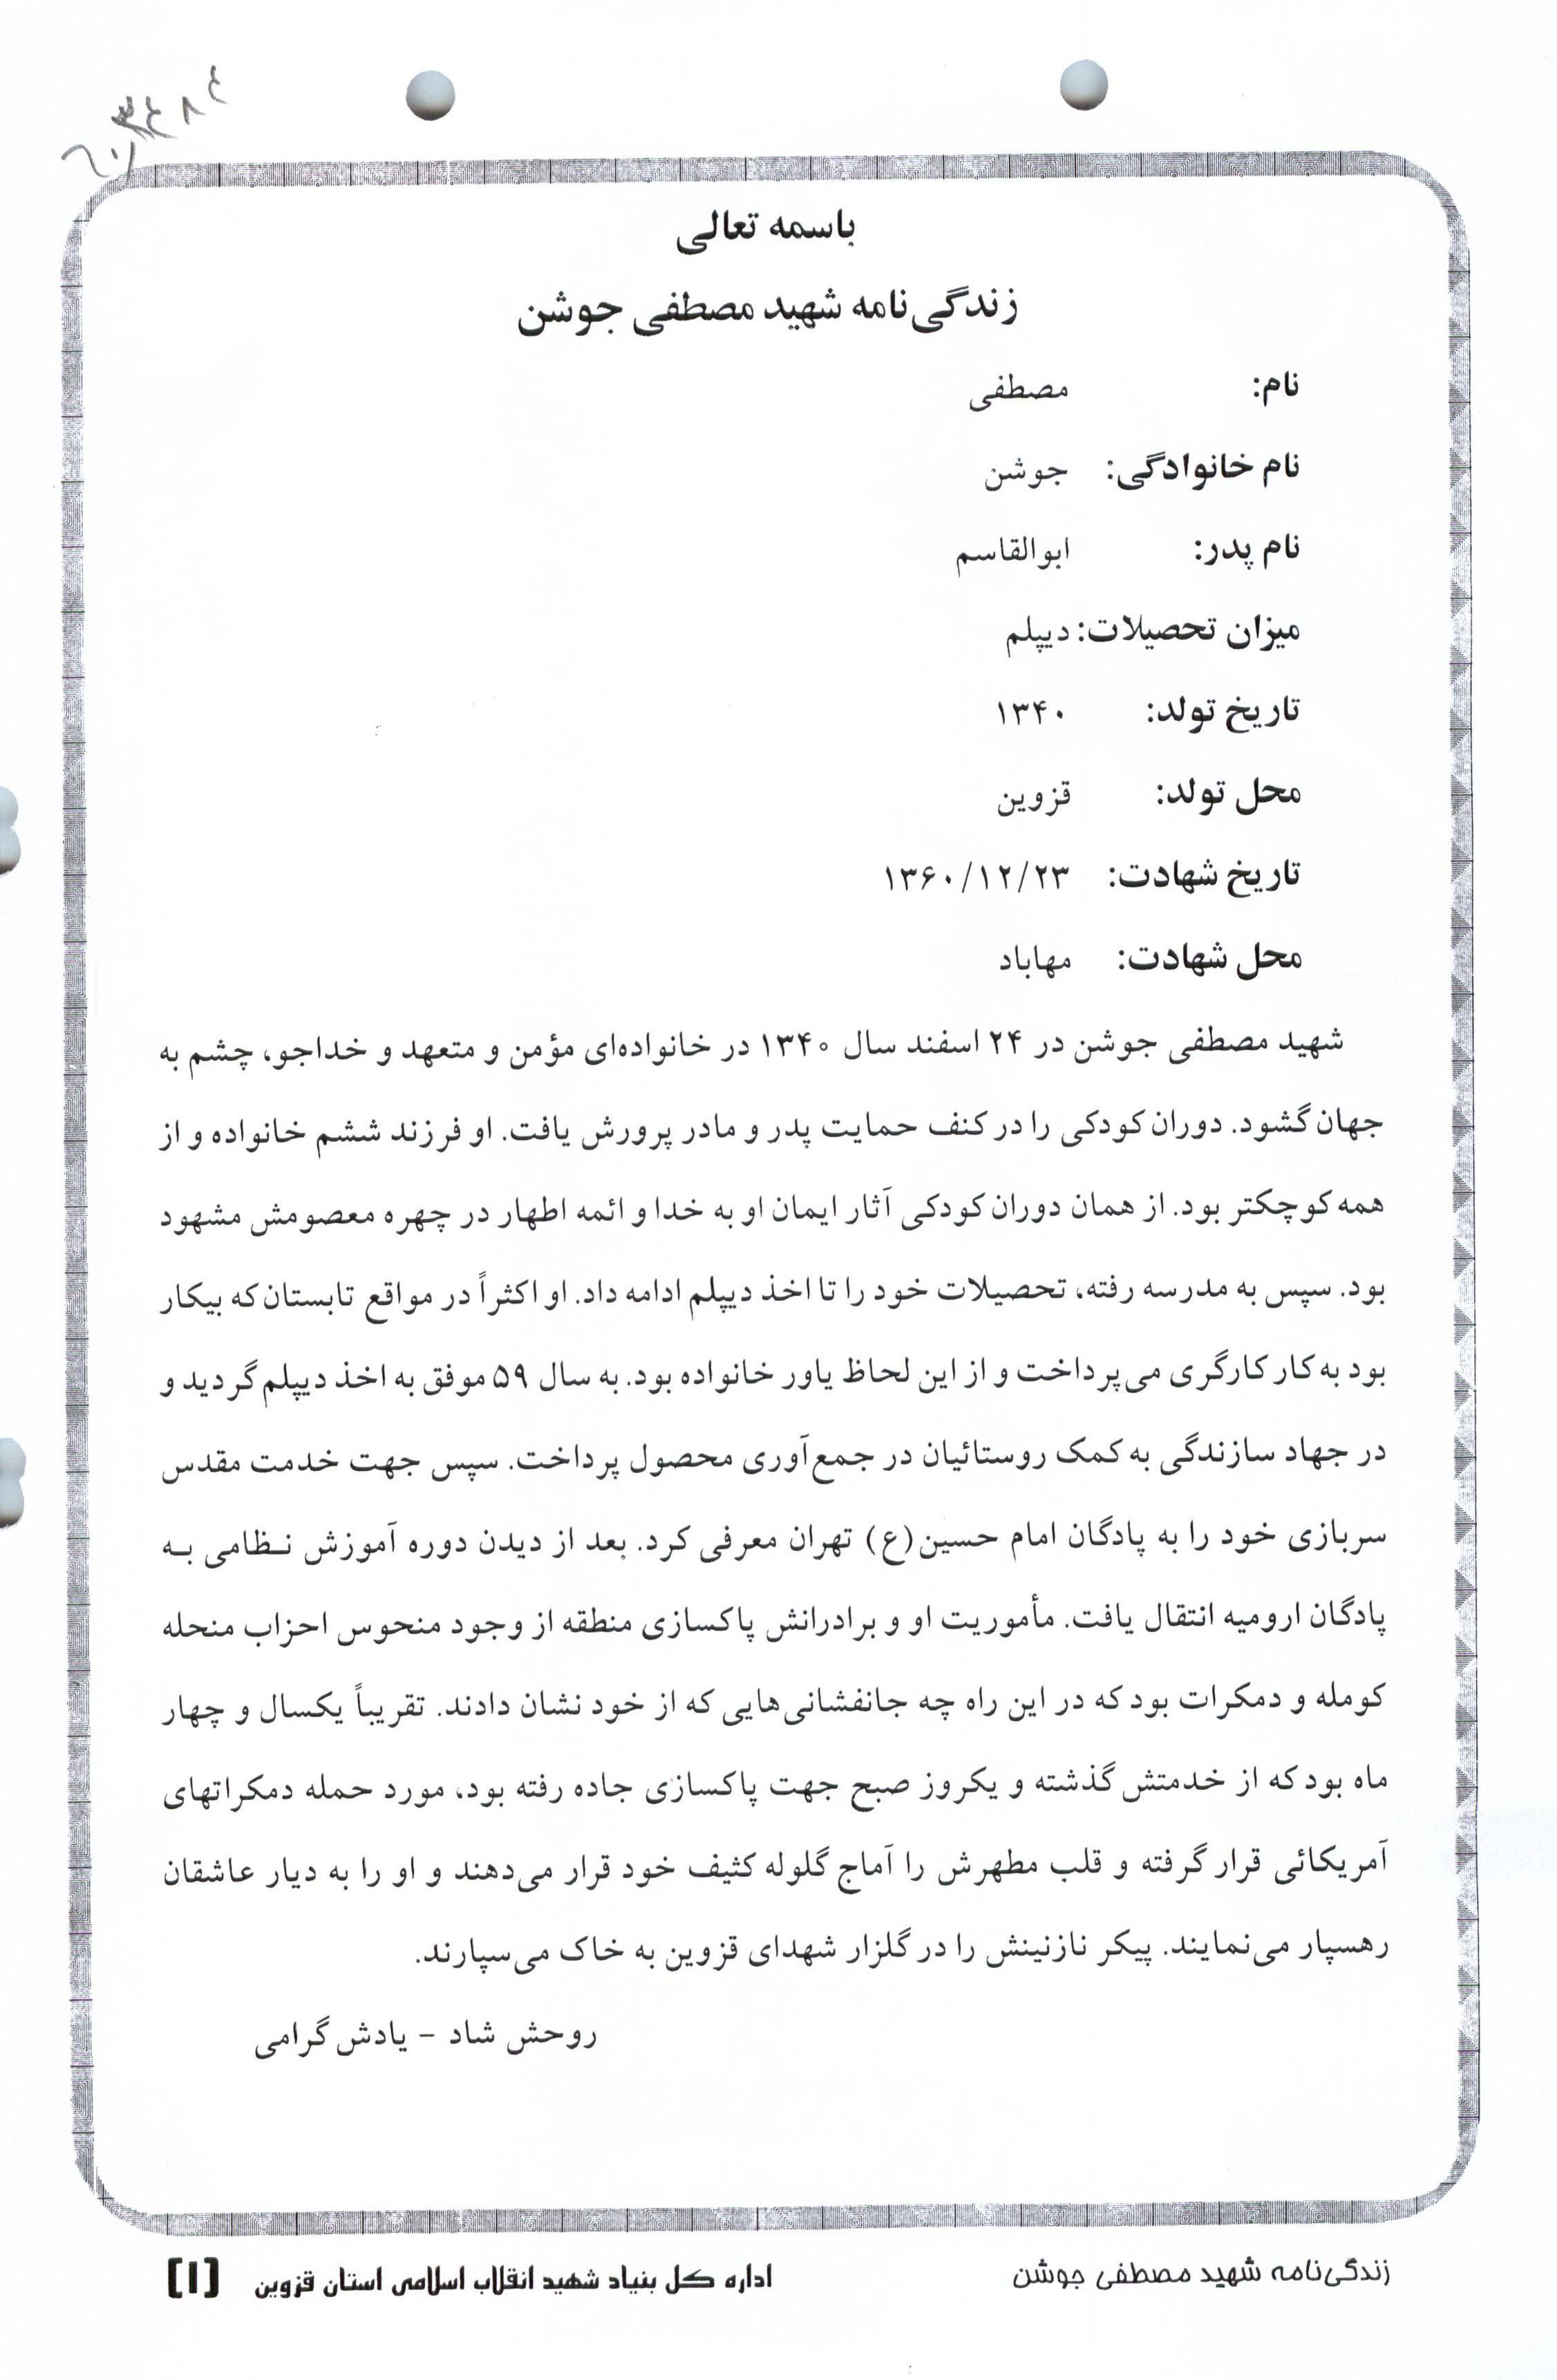 باسمه تعالی
زندگی‌نامه شهید مصطفی جوشن
نام: مصطفی
نام خانوادگی: جوشن
نام پدر: ابوالقاسم
میزان تحصیلات: دیپلم
تاریخ تولد: ۱۳۴۰
محل تولد: قزوین
تاریخ شهادت: ۱۳۶۰/۱۲/۲۳
محل شهادت: مهاباد
شهید مصطفی جوشن در ۲۴ اسفند سال ۱۳۴۰ در خانواده‌ای مؤمن و متعهد و خداجو، چشم به
جهان گشود. دوران کودکی را در کنف حمایت پدر و مادر پرورش یافت. او فرزند ششم خانواده و از
همه کوچکتر بود. از همان دوران کودکی آثار ایمان او به خدا و ائمه اطهار در چهره معصومش مشهود
بود. سپس به مدرسه رفته، تحصیلات خود را تا اخذ دیپلم ادامه داد. او اکثراً در مواقع تابستان که بیکار
بود به کار کارگری می‌پرداخت و از این لحاظ یاور خانواده بود. به سال ۵۹ موفق به اخذ دیپلم گردید و
در جهاد سازندگی به کمک روستائیان در جمع‌آوری محصول پرداخت. سپس جهت خدمت مقدس
سربازی خود را به پادگان امام حسین(ع) تهران معرفی کرد. بعد از دیدن دوره آموزش نظامی به
پادگان ارومیه انتقال یافت. مأموریت او و برادرانش پاکسازی منطقه از وجود منحوس احزاب منحله
کومله و دمکرات بود که در این راه چه جانفشانی‌هایی که از خود نشان دادند. تقریباً یکسال و چهار
ماه بود که از خدمتش گذشته و یکروز صبح جهت پاکسازی جاده رفته بود، مورد حمله دمکراتهای
آمریکائی قرار گرفته و قلب مطهرش را آماج گلوله کثیف خود قرار می‌دهند و او را به دیار عاشقان
رهسپار می‌نمایند. پیکر نازنینش را در گلزار شهدای قزوین به خاک می‌سپارند.
روحش شاد - یادش گرامی
زندگی‌نامه شهید مصطفی جوشن اداره کل بنیاد شهید انقلاب اسلامی استان قزوین [۱]